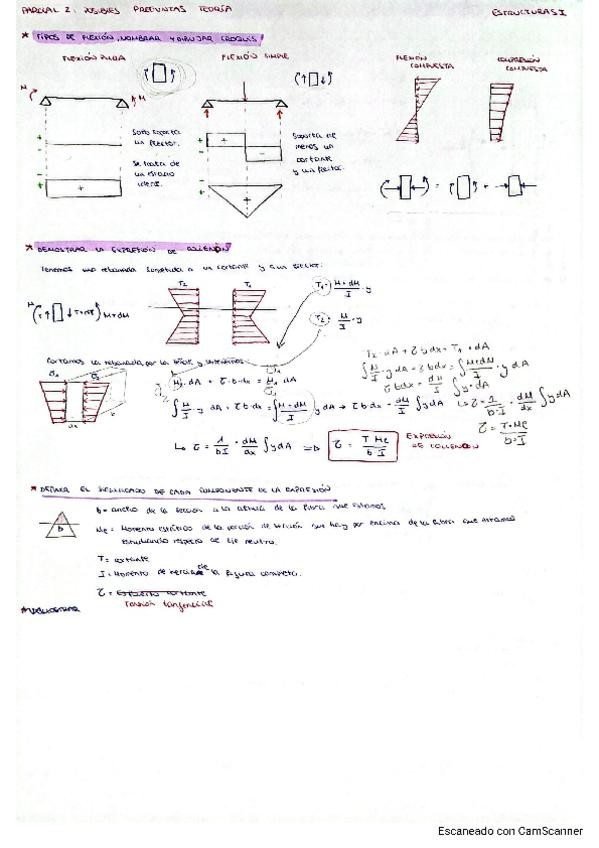 PARCIAL 2: POSIBLES PREGUNTAS TEORÍA
ESTRUCTURAS I
* TIPOS DE FLEXIÓN, NOMBRAR Y DIBUJAR CROQUIS
FLEXIÓN PURA
FLEXIÓN SIMPLE
FLEXIÓN COMPUESTA
COMPRESIÓN COMPUESTA
M
M
Solo soporta
un flector.
Se trata de
un estado
ideal.
Soporta al
menos un
cortante
y un flector.
+
-
+
-
+
-
+
-
* DEMOSTRAR LA EXPRESIÓN DE
Tenemos una rebanada sometida a un cortante y a un flector:
M
M+dM
T₂
T₁
T₁ = M+dM / I · y
T₂ = M / I · y
Cortamos la rebanada por la fibra y obtenemos:
dx
b
∫ M/I · y dA + τ · b · dx = ∫ M+dM / I y dA → τ b dx = dM/I ∫ y dA
↳ τ = 1/bI · dM/dx ∫ y dA ⇒ τ = T · Me / b · I
EXPRESIÓN
T₂ · dA + τ b dx = T₁ · dA
∫ M/I · y dA + τ b dx = ∫ M+dM / I · y dA
τ b dx = dM/I ∫ y · dA
↳ τ = 1/b·I · dM/dx ∫ y dA
τ = T · Me / b · I
* DEFINIR EL SIGNIFICADO DE CADA COMPONENTE DE LA EXPRESIÓN
b = ancho de la sección a la altura de la fibra que estamos
Me = Momento estático de la porción de sección que hay por encima de la fibra que estamos
estudiando respecto de eje neutro.
T = cortante
I = Momento de inercia de la figura completa.
τ = Esfuerzo cortante
Tensión tangencial
* DEMOSTRAR
Escaneado con CamScanner